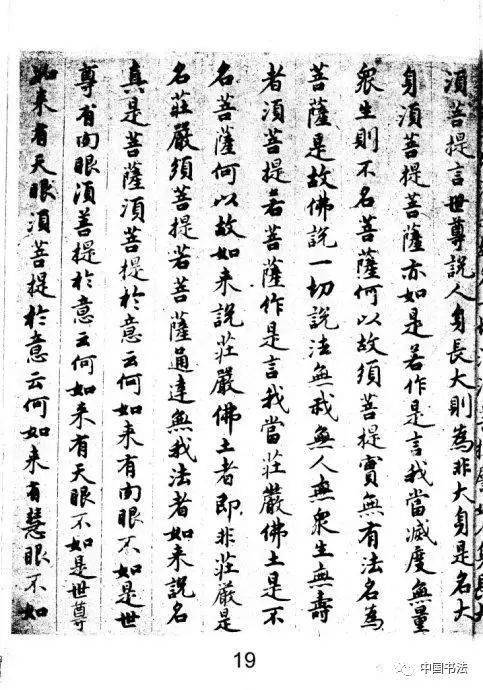 須菩提言世尊說人身長大則為非大身是名大
身須菩提菩薩亦如是若作是言我當滅度無量
衆生則不名菩薩何以故須菩提實無有法名為
菩薩是故佛說一切說法無我無人無衆生無壽
者須菩提若菩薩作是言我當莊嚴佛土是不
名菩薩何以故如来說莊嚴佛土者即非莊嚴是
名莊嚴須菩提若菩薩通達無我法者如来說名
真是菩薩須菩提於意云何如来有肉眼不如是世
尊有肉眼須菩提於意云何如来有天眼不如是世尊
如来有天眼須菩提於意云何如来有慧眼不如
19
中国书法